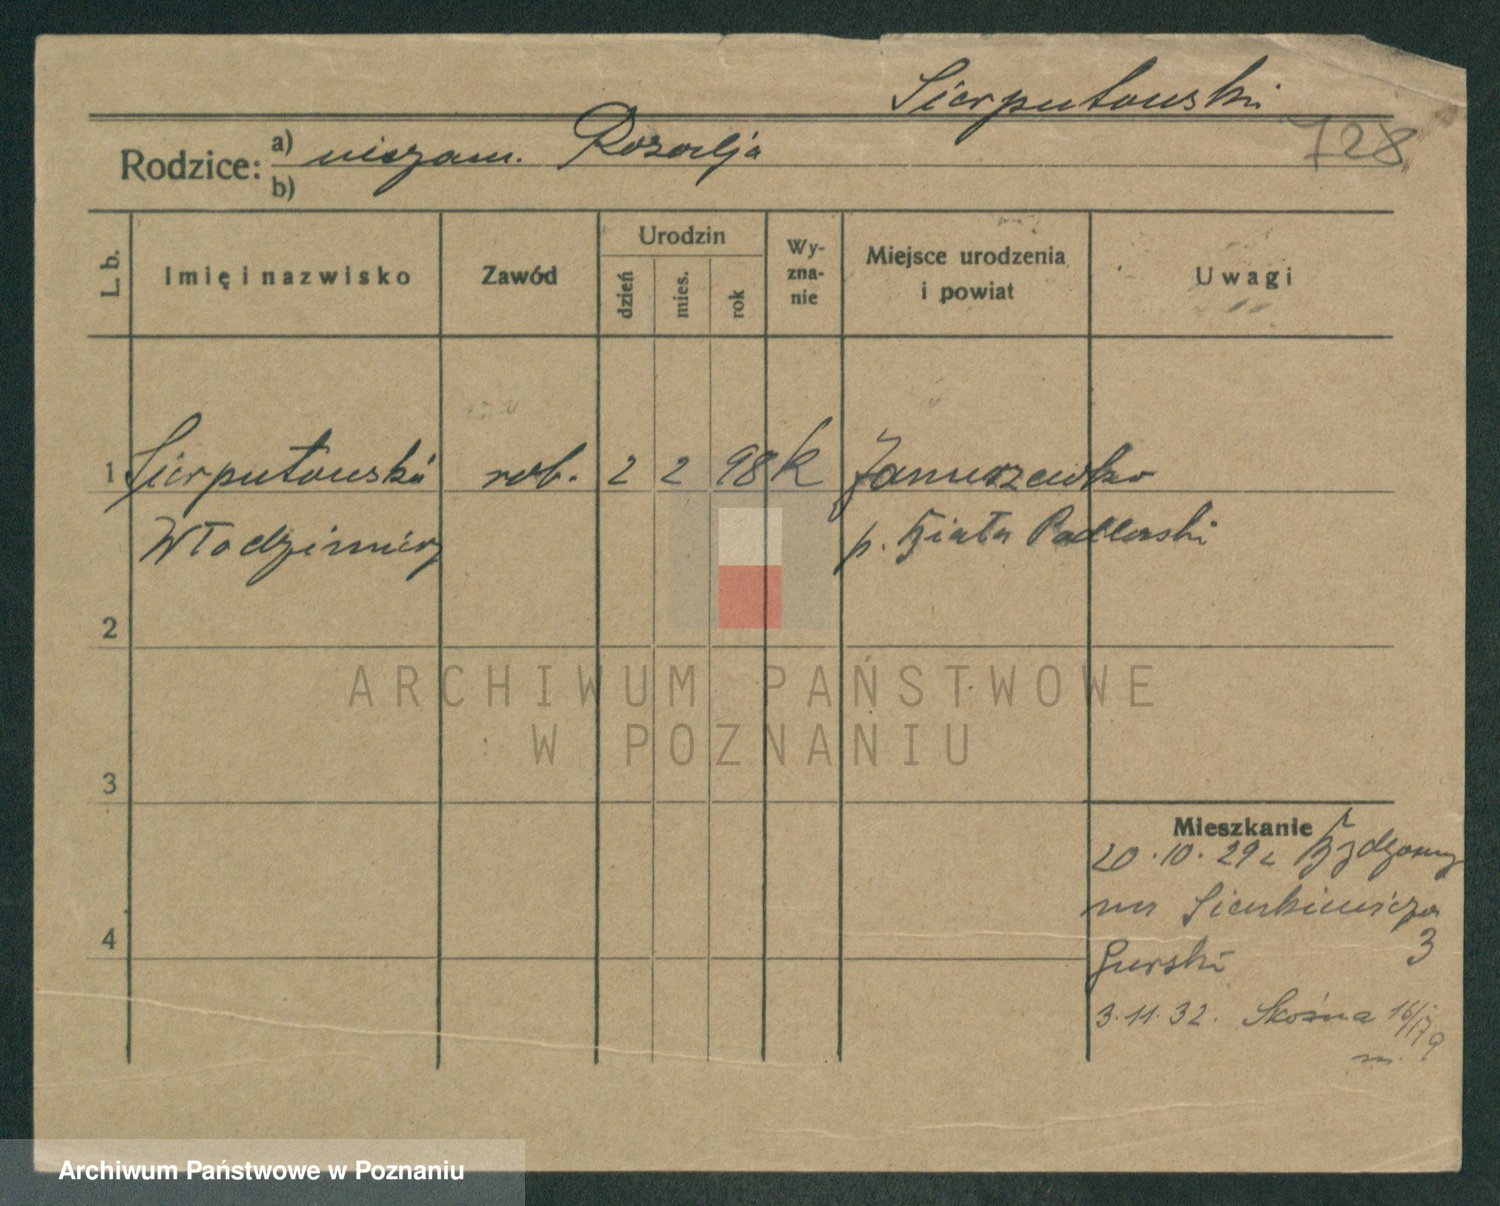 Sierputowski
728
Rodzice: a) niezam. Rozalja
b)
L. b.
Imię i nazwisko
Zawód
Urodzin
dzień
mies.
rok
Wy-
zna-
nie
Miejsce urodzenia
i powiat
Uwagi
1 Sierputowski rob. 2 2 98 k Januszewko
Włodzimierz p. Biała Podlaski
2
3
4
Mieszkanie
20.10.29 z Bydgoszcz
Sienkiewicza
3
Gurski
3.11.32. Skośna 16/17
m. 9
ARCHIWUM PAŃSTWOWE
W POZNANIU
Archiwum Państwowe w Poznaniu